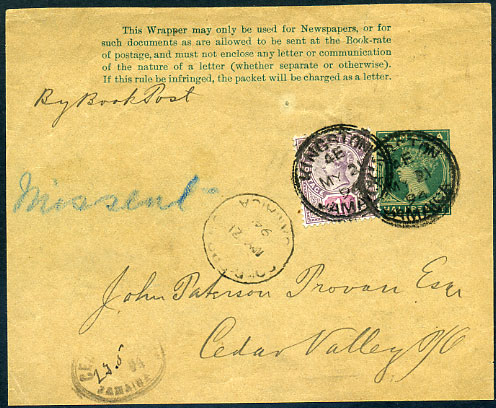 This Wrapper may only be used for Newspapers, or for
such documents as are allowed to be sent at the Book-rate
of postage, and must not enclose any letter or communication
of the nature of a letter (whether separate or otherwise).
If this rule be infringed, the packet will be charged as a letter.
By Book Post
KINGSTON
MY 2
JAMAICA
KINGSTON
JAMAICA
Missent
JAMAICA
94
John Paterson Provan Esqr
Cedar Valley P/O
JAMAICA